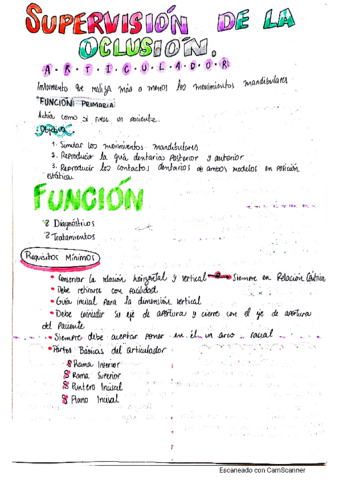 SUPERVISIÓN DE LA
OCLUSIÓN.
ARTICULADOR
Instrumento que realiza más o menos los movimientos mandibulares
"FUNCIÓN PRIMARIA:
Actúa como si fuese un paciente.
Objetivo:
1. Simular los movimientos mandibulares
2. Reproducir la guía dentaria posterior y anterior
3. Reproducir los contactos dentarios de ambos modelos en posición
estática
FUNCIÓN
Diagnósticos
Tratamientos
Requisitos Mínimos
• Conservar la relación horizontal y vertical → Siempre en Relación Céntrica
• Debe retirarse con facilidad
• Guía incisal para la dimensión vertical
• Debe coincidir su eje de apertura y cierre con el eje de apertura
del Paciente
• Siempre debe aceptar poner en él un arco facial
• Partes Básicas del articulador
Rama Inferior
Rama Superior
Puntero Incisal
Plano Incisal
Escaneado con CamScanner